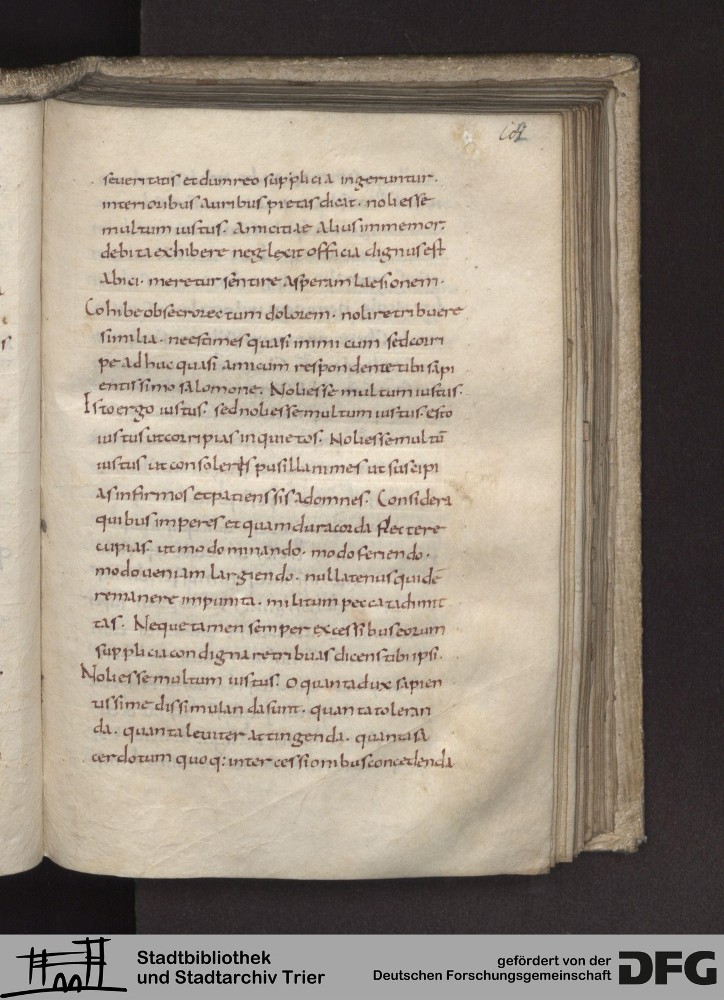 seueritatis et dum reo supplicia ingeruntur.
interioribus auribus pietas dicat. noli esse
multum iustus. amicitiae alius immemor.
debita exhibere neglexit officia dignus est
abici. meretur sentire asperam laesionem.
Cohibe obsecro rectum dolorem. noli retribuere
similia. nec aestimes quasi inimicum sed corri
pe adhuc quasi amicum respondente tibi sapi
entissimo salomone. Noli esse multum iustus.
Esto ergo iustus. sed noli esse multum iustus. esto
iustus ut corripias inquietos. Noli esse multū
iustus ut consoleris pusillanimes ut suscipi
as infirmos et patiens sis ad omnes. Considera
quibus imperes et quam dura corda flectere
cupias. ut modo minando. modo feriendo.
modo ueniam largiendo. nullatenus quidē
remanere impunita. militum peccata dimit
tas. Neque tamen semper excessibus eorum
supplicia condigna retribuas dicens tibi ipsi.
Noli esse multum iustus. O quanta dux sapien
tissime dissimulanda sunt. quanta toleran
da. quanta leuiter attingenda. quanta sa
cerdotum quoq: intercessionibus concedenda
Stadtbibliothek
und Stadtarchiv Trier
gefördert von der
Deutschen Forschungsgemeinschaft
DFG